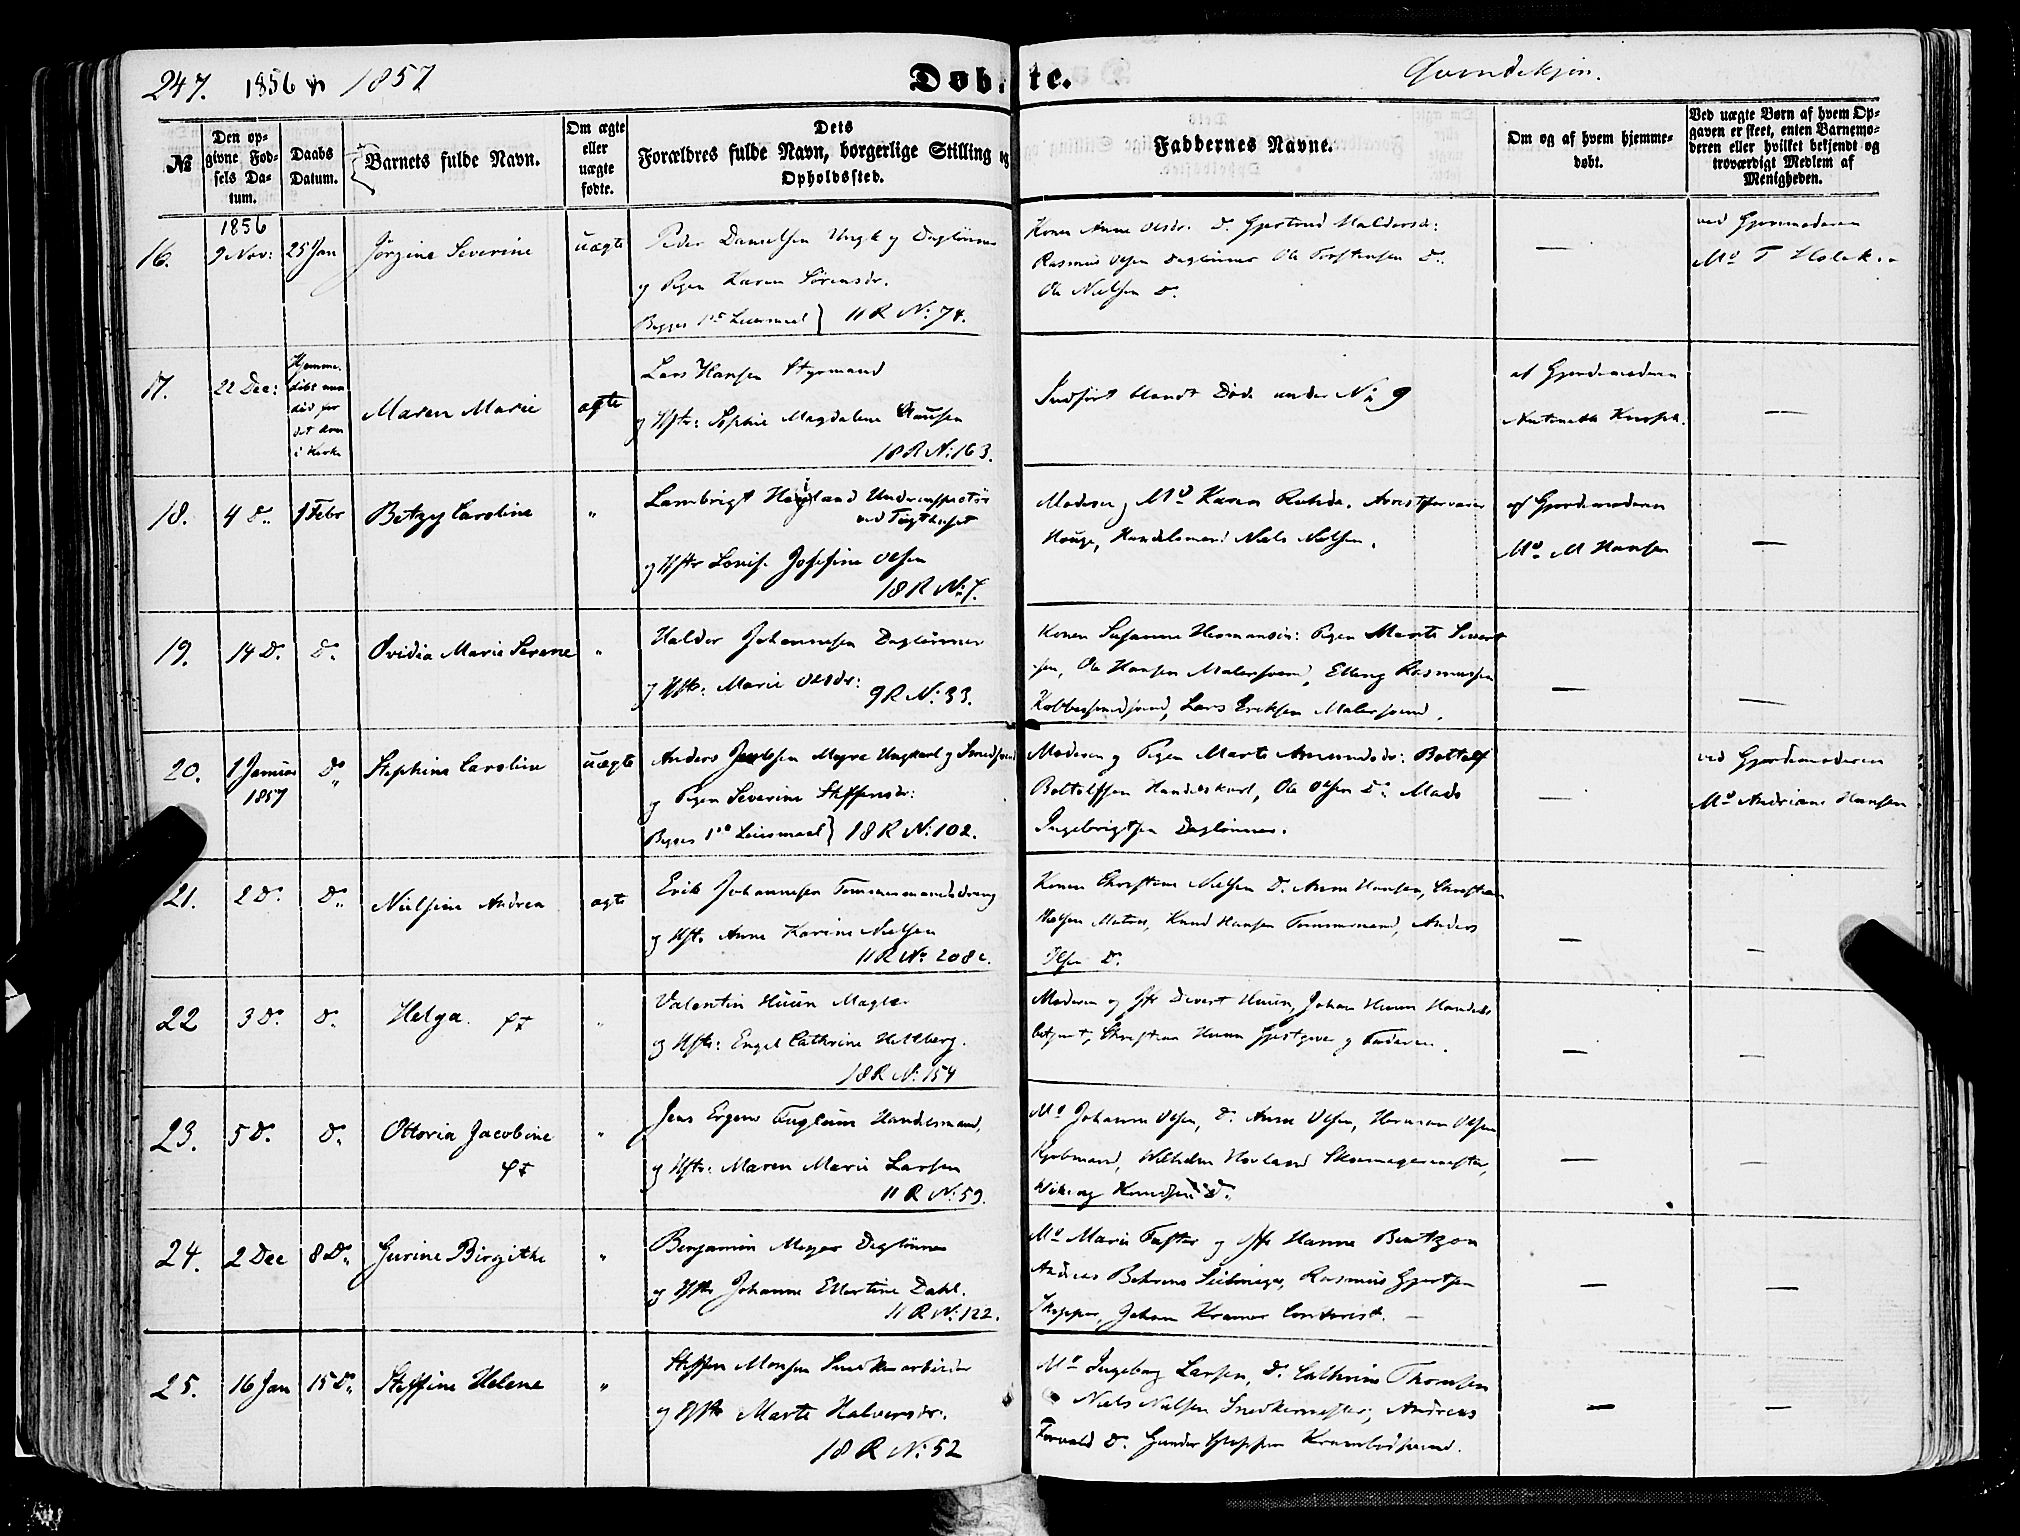 247. 1856 1857 Døbte. Qvindekjøn.
№
Den opgivne Fødsels Datum.
Daabs Datum.
Barnets fulde Navn.
Om ægte eller uægte fødte.
Dets Forældres fulde Navn, borgerlige Stilling og Opholdssted.
Faddernes Navne.
Om og af hvem hjemmedøbt.
Ved uægte Børn af hvem Opgaven er skeet, enten Barnemoderen eller hvilket bekjendt og troværdigt Medlem af Menigheden.
1856
16. 9 Nov: 25 Jan Jørgine Severine uægte
Peder Danielsen Ungk og Daglønner
og Pigen Karen Sørensdr.
Begges 1ste Leiermaal } 11 R № 74.
Konen Anne Olsdr. Do Gjertrud Haldorsdr:
Rasmus Olsen Daglønner Ole Torstensen Do
Ole Nielsen Do
—
ved Gjormoderen
Md T Holck
17. 22 Dec:
Hjemme-
døbt men
død før
det kom
i Kirke
Maren Marie ægte
Lars Hansen Styrmand
og Hstr: Sophie Magdalene Clausen
18 R № 163.
Indført blandt Døde under № 9
af Gjordemoderen
Antonette
—
18. 4 Do 1 Febr Betzy Caroline "
Lambrigt Hegland Underinspectør
ved Tugthuset
og Hstr Lovise Josefine Olsen
18 R № 1.
Moderen, Md Karen Rohde, Arrestforvarer
Houge, Handelsmand Niels Nielsen.
af Gjordemoderen
Md M Hansen
—
19. 14 Do Do Ovidia Marie Serene "
Haldor Johannesen Daglønner
og Hstr: Marie Olsdr:
9 R № 33.
Konen Susanne Hermansen: Pigen Marte Sivert
sen, Ole Hansen Malersvend, Elling Rasmussen
Kobbersmedsvend, Lars Eriksen Malersvend.
—
—
20. 1 Januar
1857
Do Stephine Caroline uægte
Anders Jacobsen Myre Ungkarl og Smedsvend
og Pigen Severine Steffensdr:
Begges 1ste Leiermaal } 18 R № 102.
Moderen og Pigen Marte Amundsdr: Bottolf
Bottolfsen Handelskarl, Ole Olsen Do Mads
Ingebrigtsen Daglønner.
—
ved Gjordemoderen
Md Andriane Hansen
21. 2 Do Do Nielsine Andrea ægte
Erik Johannesen Tømmermandsdreng
og Hstr Anne Karine Nielsen
11 R № 208 c.
Konen Christine Nielsen Do Anne Hansen, Christian
Nielsen Matros, Knud Hansen Tømmermand, Anders
Olsen Do
—
—
22 3 Do Do Helga. "
Valentin Huun Mægler
og Hstr: Engel Cathrine Heltberg.
18 R № 154
Moderen og Jfr Divert Huun, Johan Huun Handels
betjent, Christian Huun Gjestgiver og Faderen.
—
—
23. 5 Do Do Ottoria Jacobine "
Jens Fuglum Handelsmand,
og Hstr: Maren Marie Larsen
11 R № 59.
Md Johanne Olsen, Do Anne Olsen, Herman Olsen
Kjøbmand, Wilhelm Hovland Skomagermester,
Knudsen Do
—
—
24. 2 Dec 8 Do Gurine Birgithe "
Benjamin Meyer Daglønner
og Hstr Johanne Ellertine Dahl.
11 R № 122.
Md Marie Faster og Jfr Hanne Bentzon
Andreas Behrens Seilmager, Rasmus Gjertsen
Skipper, Johan Kramer Contorist.
—
—
25. 16 Jan 15 Do Steffine Helene "
Steffen Monsen Snedkerarbeider
og Hstr Marte Halversdr.
18 R № 52
Md Ingeborg Larsen, Do Cathrine Thomsen
Niels Nielsen Snedkermester, Andreas
Do Gunder Krambodsvend.
—
—